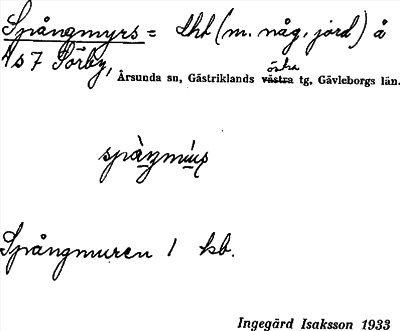 Spångmyrs = lht (m. någ. jord) å
1s7 Sörby,
Årsunda sn, Gästriklands västra östra tg, Gävleborgs län.
Spångmuren 1 kb.
Ingegärd Isaksson 1933